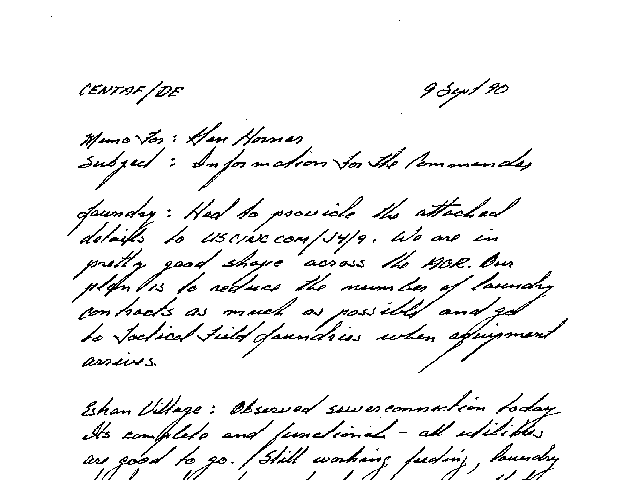 CENTAF/DE 9 Sept 90
Memo for: Gen Horner
Subject: Information for the Commander
Laundry: Had to provide the attached
details to USCINCCOM/J4/9. We are in
pretty good shape across the AOR. Our
plan is to reduce the number of laundry
contracts as much as possible and go
to Tactical Field Laundries when equipment
arrives.
Eskan Village: Observed sewer connection today
Its complete and functional - all utilities
are good to go. Still working feeding, laundry